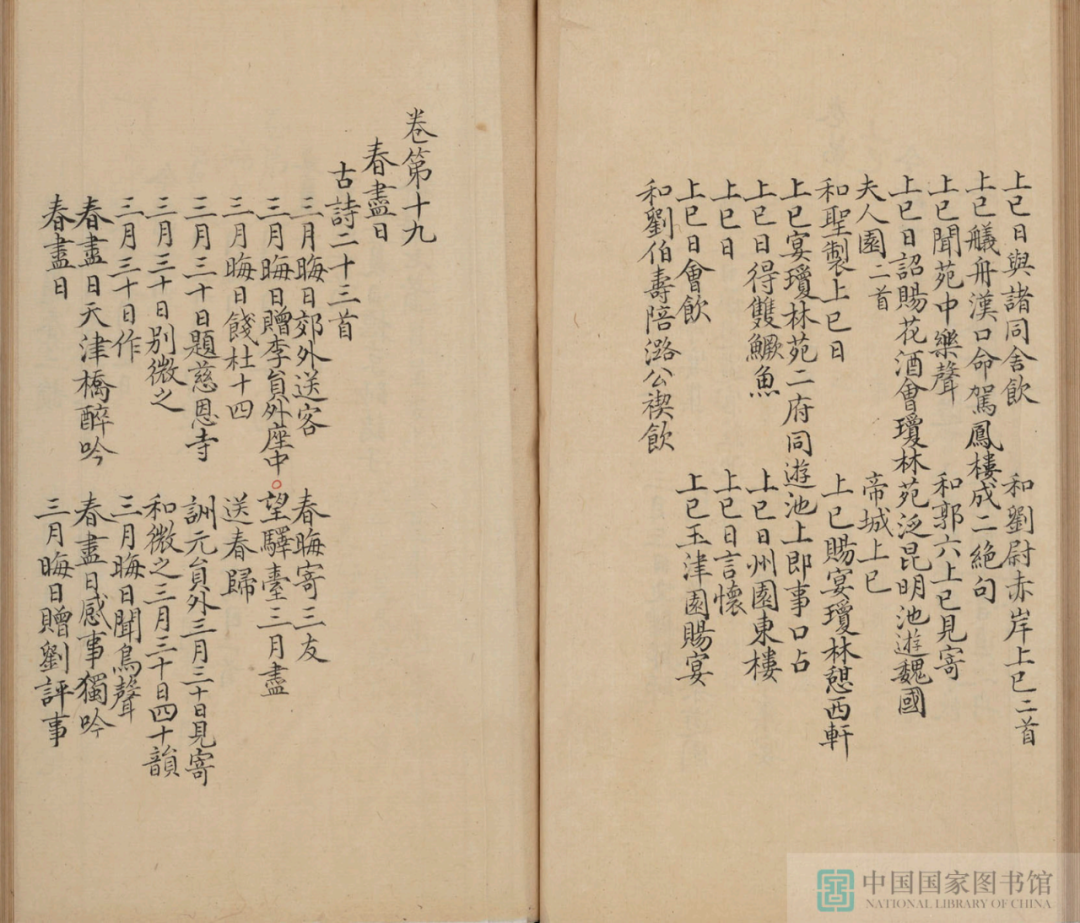 上巳日與諸同舍飲　和劉尉赤岸上巳二首
上巳艤舟漢口命駕鳳樓成二絕句
上巳聞苑中樂聲　和郭六上巳見寄
上巳日詔賜花酒會瓊林苑泛昆明池遊魏國
夫人園二首　帝城上巳
和聖製上巳日　上巳賜宴瓊林憩西軒
上巳宴瓊林苑二府同遊池上即事口占
上巳日得雙鱖魚　上巳日州園東樓
上巳日　上巳日言懷
上巳日會飲　上巳玉津園賜宴
和劉伯壽陪潞公禊飲
卷第十九
春盡日
古詩二十三首
三月晦日郊外送客　春晦寄三友
三月晦日贈李員外座中。望驛臺三月盡
三月晦日餞杜十四　送春歸
三月三十日題慈恩寺　詶元員外三月三十日見寄
三月三十日別微之　和微之三月三十日四十韻
三月三十日作　三月晦日聞鳥聲
春盡日天津橋醉吟　春盡日感事獨吟
春盡日　三月晦日贈劉評事
中国国家图书馆
NATIONAL LIBRARY OF CHINA